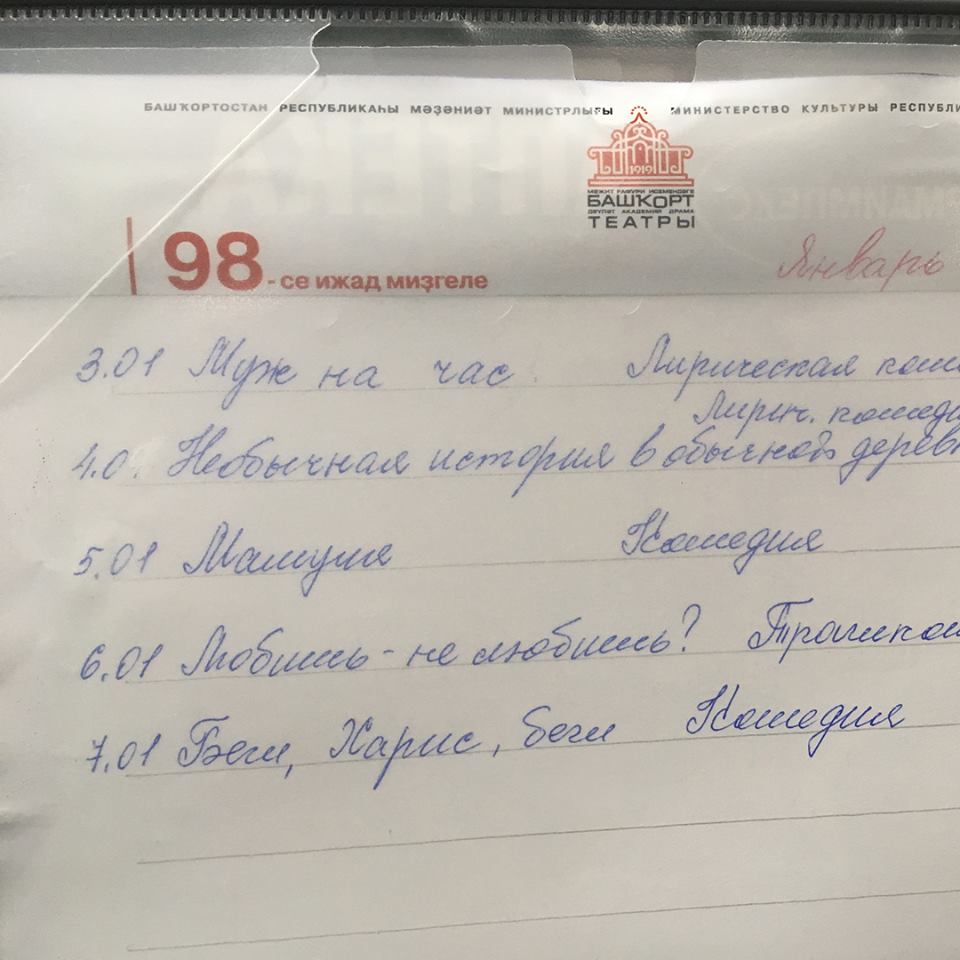 БАШҠОРТОСТАН РЕСПУБЛИКАҺЫ МӘҘӘНИӘТ МИНИСТРЛЫҒЫ
МИНИСТЕРСТВО КУЛЬТУРЫ РЕСПУБЛИ
1919
МӘЖИТ ҒАФУРИ ИСЕМЕНДӘГЕ
БАШҠОРТ
ДӘҮЛӘТ АКАДЕМИЯ ДРАМА
ТЕАТРЫ
98-се ижад миҙгеле
Январь
3.01 Муж на час Лирическая коме
Лирич. комеди
4.0 Необычная история в обычной деревн
5.01 Мамуля Комедия
6.01 Любишь - не любишь? Трагиком
7.01 Беги, Харис, беги Комедия